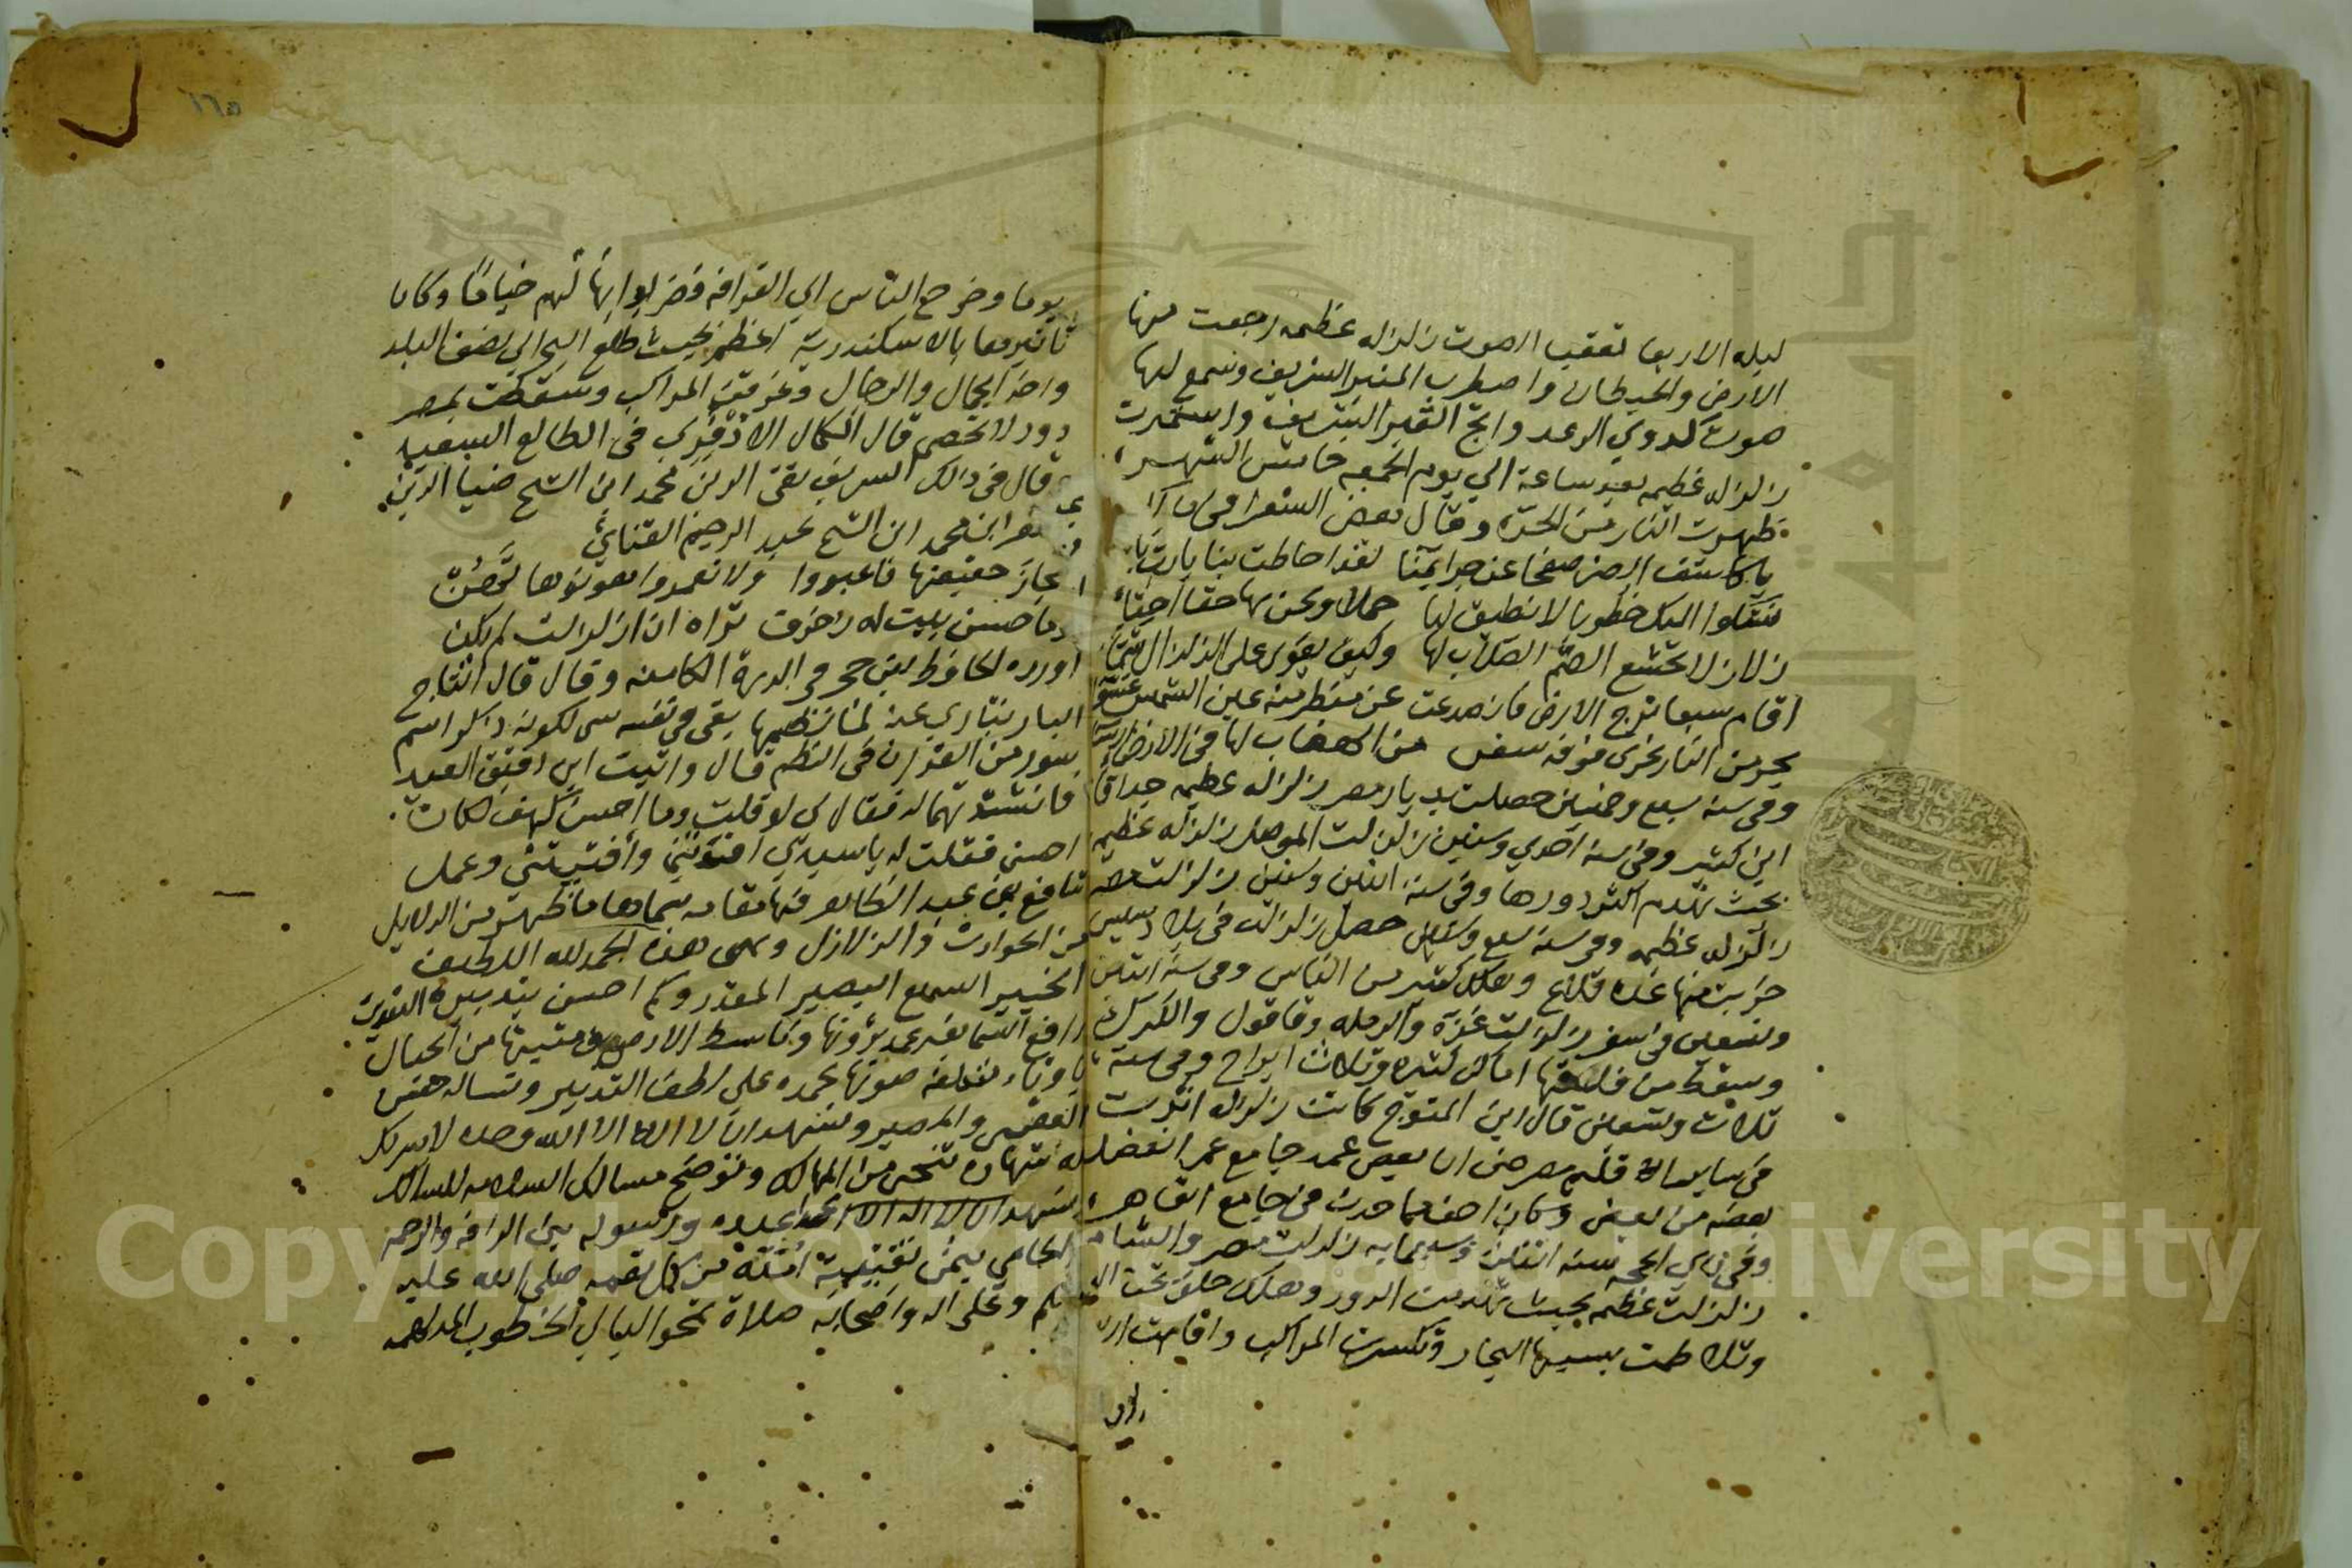 ليله الاربعا تعقب الصوت زلزله عظيمه رجعت منها
الارض والحيطان واضطرب المنبر الشريف وسمع لها
صوت كدوي الرعد وارتج القبر الشريف واستمرت
زلزله عظيمه بعد ساعة الي يوم الجمعه خامس الشهر
ظهرت النار من الحرة وقال بعض الشعرا في ذلك
يا كاشف الضر صفحا عن جرايمنا لقد احاطت بنا يا رب
نشكوا اليك خطوبا لا نطيق لها حملا ونحن بها حقا احقاء
زلازلا تخشع الصم الصلاب لها وكيف يقوى على الزلزال شماء
اقام سبعا ترج الارض فانصدعت عن منظر منه عين الشمس عشواء
بحر من النار تجري فوقه سفن من الهضاب لها في الارض ارساء
وفي سنه سبع وخمسين حصلت بديار مصر زلزله عظيمه جدا قاله
ابن كثير وفي سنه احدي وستين زلزلت الموصل زلزله عظيمه
بحيث تهدم اكثر دورها وفي سنه اثنين وستين زلزلت مصر
زلزله عظيمه وفي سنه سبع وستين حصل زلزله في بلاد سيس
خربت منها عدة قلاع وهلك كثير من الناس وفي سنة اثنين
وتسعين في صفر زلزلت غزة والرمله وقاقون والكرك
وسقط من قلعتها اماكن كثيره وثلاث ابراج وفي سنة
ثلاث وتسعين قال ابن المتوج كانت زلزله اثرت
في سايساله قلم مصر حتى ان بعض عمد جامع عمر انفصل
بعضه من بعض وكان اخف مما حدث في جامع القاهر
وفي ذي الحجه سنه اثنين وسبعمايه زلزلت مصر والشام
زلزلت عظيمه بحيث تهدمت الدور وهلك خلق تحت
وتلاطمت بسببها البحار وتكسرت المراكب واقامت
يوما وخرج الناس الي القرافه وضربوا بها لهم خياما وكان
تاثيرها بالاسكندرية اعظم بحيث طلع البحر الي نصف البلد
واخذ الجمال والرجال وغرقت المراكب وسقطت بمصر
دور لا تحصى قال الكمال الادفوي في الطالع السعيد
وقال في ذلك الشريف تقي الدين محمد ابن الشيخ ضيا الدين
جعفر ابن محمد ابن الشيخ عبد الرحيم القنائي
مجاز حقيقتها فاعبروا ولا تعمروا هونوها تهن
وما حسن بيت له زخرف تراه اذا زلزلت لم يكن
اورده الحافظ ابن حجر في الدرر الكامنه وقال قال التاج
البارنباري عند لما نظمها بقى في نفسه شي لكونه ذكر اسم
سور من القران في النظم قال واتيت ابن دقيق العيد
فانشدتهما له فقال لي لو قلت وما احسن كهف لكان
احسن فقلت له يا سيدي افدتني وافتيتني وعمل
شافع بن عبد الظاهر فيها مقامه سماها ما ظهر من الدلايل
من الحوادث والزلازل وهي هذه الحمد لله اللطيف
الخبير السميع البصير المقدر وكم احسن بتدبيره التقدير
رافع السما بغير عمد ترونها وباسط الارض ومثبتها من الجبال
باوتاد تكلفه صونها نحمده على لطف التدبير ونساله حسن
العقبى والمصير ونشهد ان لا اله الا الله وحده لا شريك
له شهادة تنجي من المهالك وتوضح مسالك السلامه للسالك
ونشهد ان محمدا عبده ورسوله نبي الرافه والرحمه
الحامي بيمن نقيبية امته من كل نقمه صلى الله عليه
وسلم وعلى اله واصحابه صلاة تمحو الليالي الخطوب المدلهمه